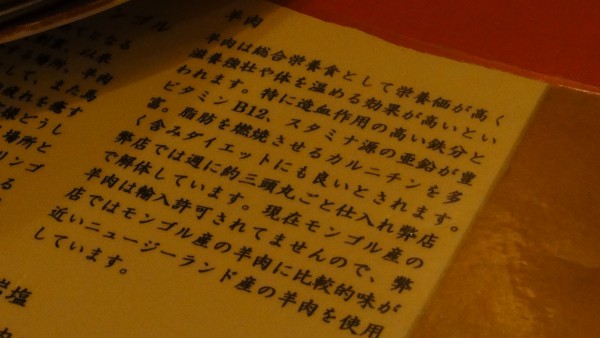 羊肉
羊肉は総合栄養食として栄養価が高く
滋養強壮や体を温める効果が高いとい
われます。特に造血作用の高い鉄分と
ビタミンB12、スタミナ源の亜鉛が豊
富。脂肪を燃焼させるカルニチンを多
く含みダイエットにも良いとされます。
弊店では週に約三頭丸ごと仕入れ弊店
で解体しています。現在モンゴル産の
羊肉は輸入許可されてませんので、弊
店ではモンゴル産の羊肉に比較的味が
近いニュージーランド産の羊肉を使用
しています。
モンゴル
くてとなる
羊肉
また馬
疲れを癒す
どうし
場所と
リンゴ
る
岩塩